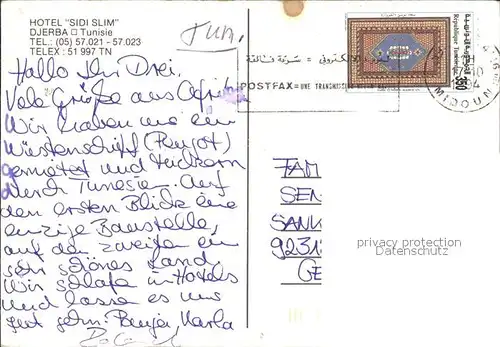 HOTEL "SIDI SLIM"
DJERBA □ Tunisie
TEL.: (05) 57.021 - 57.023
TELEX : 51 997 TN
Tun.
Hallo Ihr Drei.
Viele Grüße aus Afrika
Wir haben uns ein
Wüstenschiff (Peujot)
gemietet und tuckern
durch Tunesien. Auf
den ersten Blick eine
einzige Baustelle,
auf den zweiten ein
sehr schönes Land.
Wir schlafen in Hotels
und lassen es uns
gut gehn. Karla
République Tunisienne
POSTFAX = UNE TRANSMISSION
MIDOUN
FAM
SEN
SANK
9231
GE
privacy protection
Datenschutz